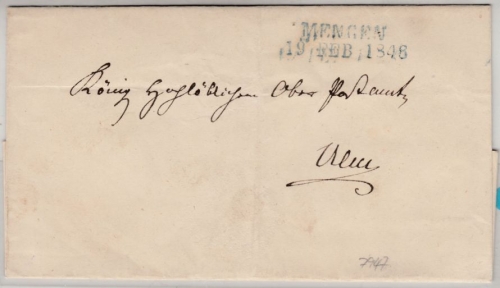 MENGEN
19 FEB 1846
König Hochlöblichem Ober Postamt,
Ulm